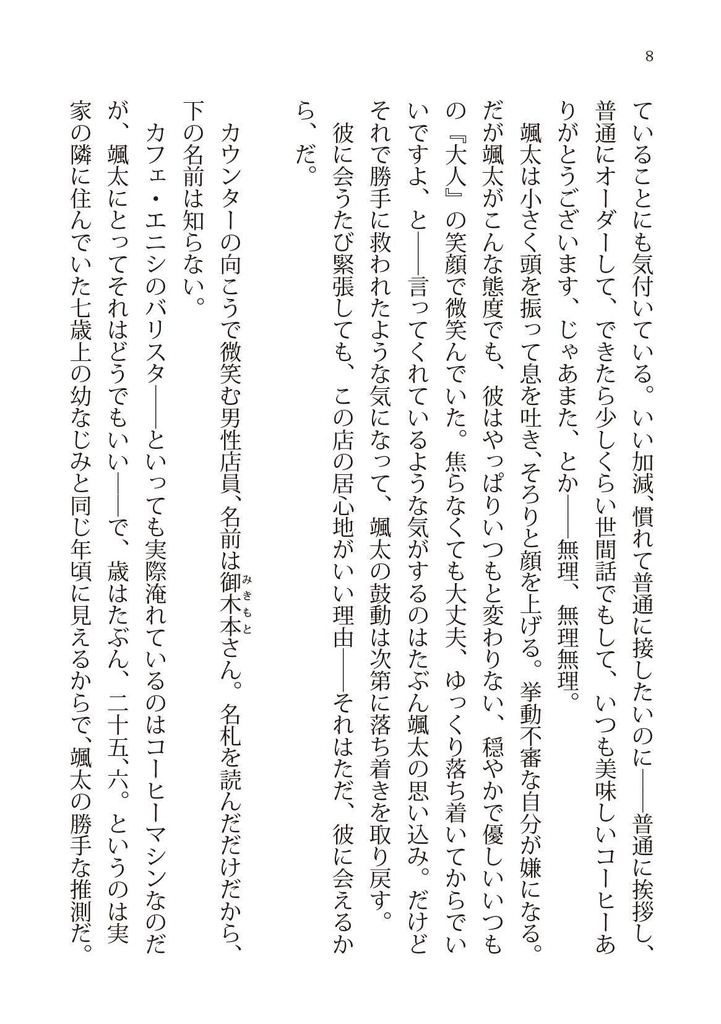 8
ていることにも気付いている。いい加減、慣れて普通に接したいのに――普通に挨拶し、
普通にオーダーして、できたら少しくらい世間話でもして、いつも美味しいコーヒーあ
りがとうございます、じゃあまた、とか――無理、無理無理。
　颯太は小さく頭を振って息を吐き、そろりと顔を上げる。挙動不審な自分が嫌になる。
だが颯太がこんな態度でも、彼はやっぱりいつもと変わりない、穏やかで優しいいつも
の『大人』の笑顔で微笑んでいた。焦らなくても大丈夫、ゆっくり落ち着いてからでい
いですよ、と――言ってくれているような気がするのはたぶん颯太の思い込み。だけど
それで勝手に救われたような気になって、颯太の鼓動は次第に落ち着きを取り戻す。
　彼に会うたび緊張しても、この店の居心地がいい理由――それはただ、彼に会えるか
ら、だ。
　カウンターの向こうで微笑む男性店員、名前は御木本さん。名札を読んだだけだから、
みきもと
下の名前は知らない。
　カフェ・エニシのバリスタ――といっても実際淹れているのはコーヒーマシンなのだ
が、颯太にとってそれはどうでもいい――で、歳はたぶん、二十五、六。というのは実
家の隣に住んでいた七歳上の幼なじみと同じ年頃に見えるからで、颯太の勝手な推測だ。